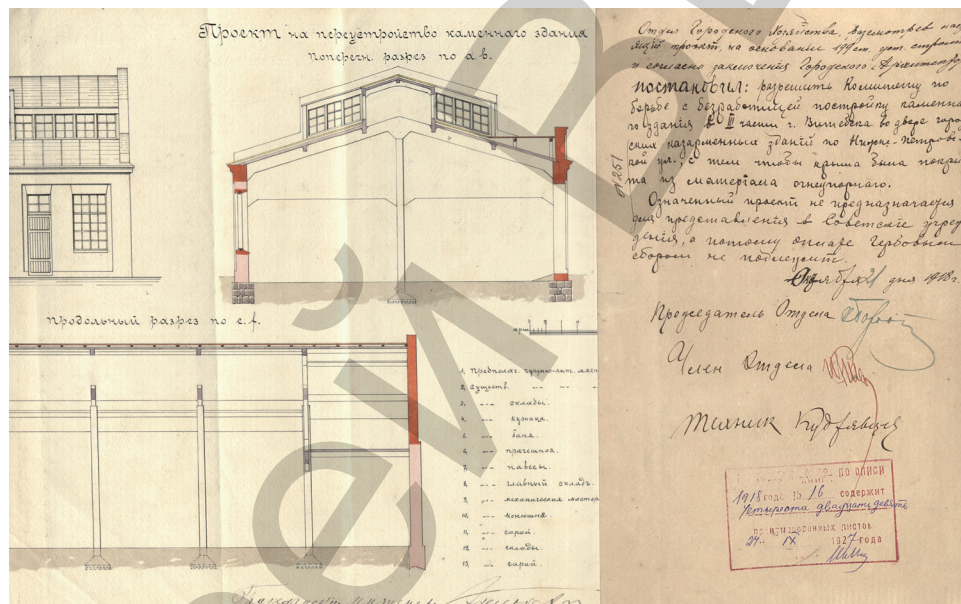 Проект на переустройство каменнаго здания
Поперечн. разрез по а.в.
продольный разрез по с.f.
1. Предполаг. чугуннолит. маст
2. Существ.
3. --- склады.
4. --- кузница.
5. --- баня.
6. --- прачешная.
7. --- навесы.
8. --- главный складъ.
9. --- механическая мастер
10. --- конюшня.
11. --- сарай.
12. --- склады.
13. --- сарай.
Гражданский инженер
№ 251
Отдел Городского Хозяйства, рассмотрев нас
ящий проект, на основании ст. уст. строит
и согласно заключения Городского Архитектора
постановил: разрешить Комитету по
борьбе с безработицей постройку каменна
го здания в III части г. Витебска во дворе горо
ских казарменных зданий по Нижне-Петровс
кой ул., с тем чтобы крыша была покры
та из материала огнеупорнаго.
Означенный проект не предназначается
для представления в Советские учреж
дения, а потому оплате Гербовым
сбором не подлежит.
Октября 21 дня 1918 г.
Председатель Отдела
Член Отдела
Техник Кудрявцев
по описи
1918 года № 16 содержит
Четыреста двадцать девять
пронумерованных листов
24 IX 1927 года
ей В